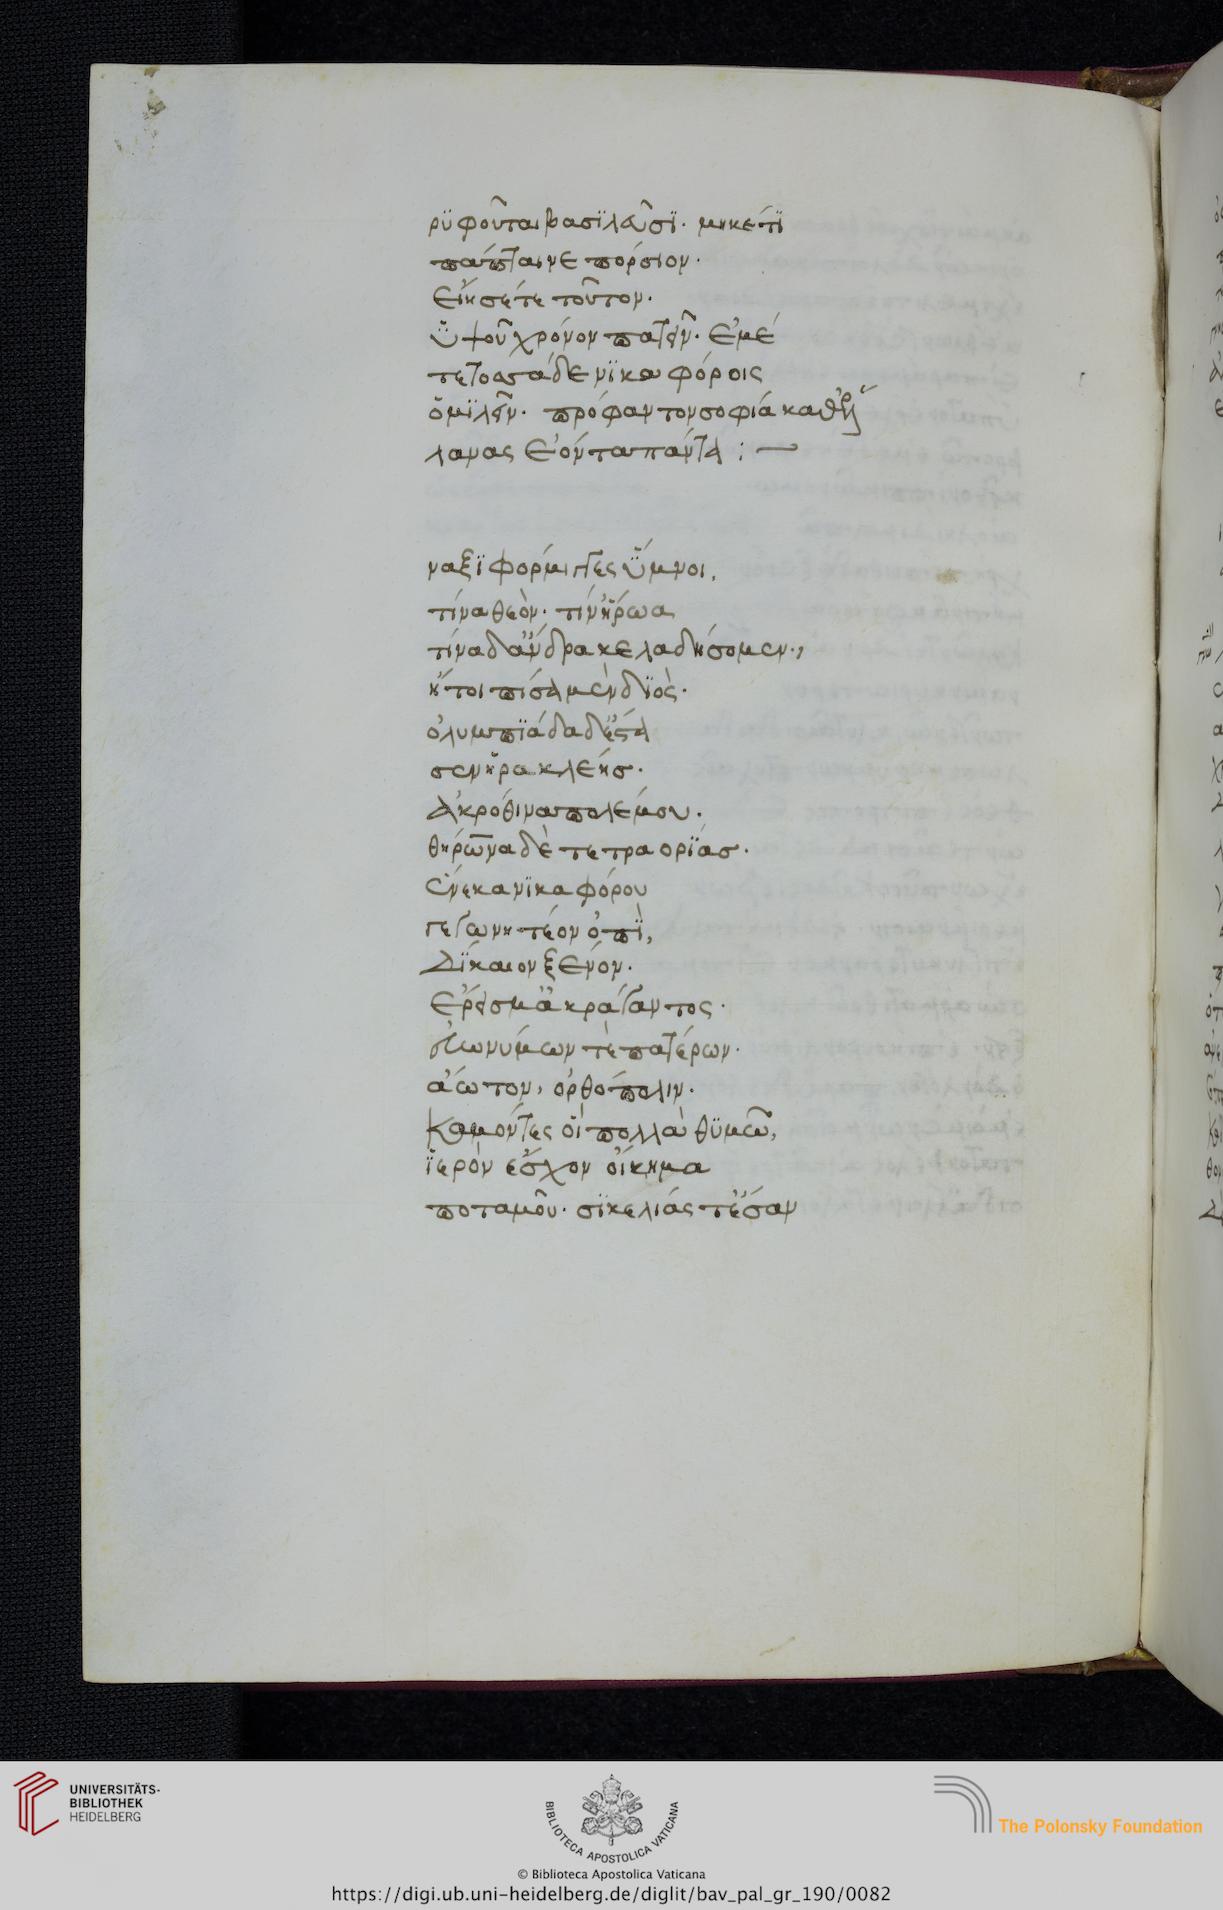 ρϋφοῦται βασϊλεῦσϊ. μηκέτϊ
πάπταινε πόρσιον.
εἴη σέ τε τοῦτον.
ὕψοῦ χρόνον πατεῖν. ἐμέ
τε τοσσάδε νϊκαφόροις
ὁμϊλεῖν. πρόφαντον σοφίᾳ καθ' ἑλ
λανας ἐόντα παντᾶ :
ναξϊφόρμιγγες ὕμνοι,
τίνα θεὸν. τίν' ἥρωα
τίνα δ' ἄνδρα κελαδήσομεν.,
ἤτοι πίσα μὲν δϊὸς.
ὀλυμπϊάδα δ' ἔστα
σεν ἡρακλέησ.
ἀκρόθινα πολέμου.
θήρωνα δὲ τετραορίας.
ἕνεκα νϊκαφόρου
γεγωνητέον ὀπϊ,
δϊκαιον ξένον.
ἔρεισμ' ἀκράγαντος.
εὐωνύμων τὲ πατέρων.
ἄωτον, ὀρθόπολιν.
καμόντες οἳ πολλὰ θϋμῶ,
ϊερὸν ἔσχον οἴκημα
ποταμοῦ. σϊκελίας τ' ἔσαν
UNIVERSITÄTS-
BIBLIOTHEK
HEIDELBERG
BIBLIOTECA APOSTOLICA VATICANA
The Polonsky Foundation
© Biblioteca Apostolica Vaticana
https://digi.ub.uni-heidelberg.de/diglit/bav_pal_gr_190/0082